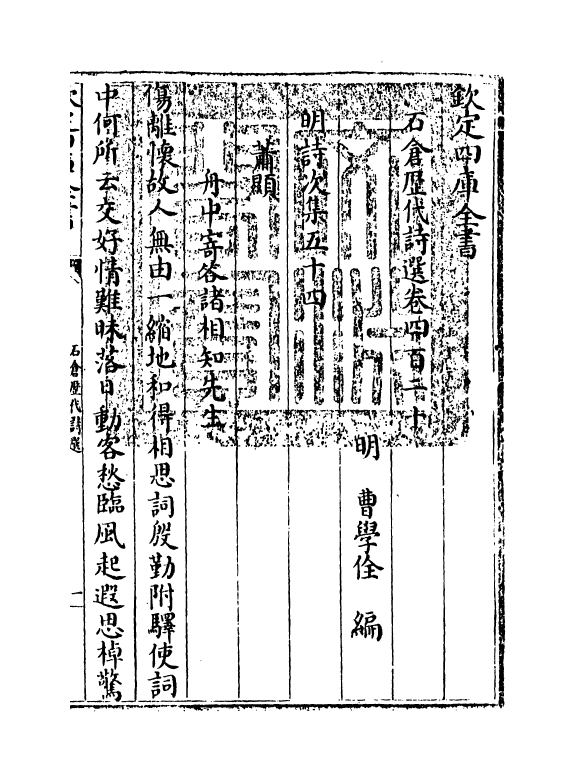 欽定四庫全書
石倉歷代詩選卷四百二十
明 曹學佺 編
明詩次集五十四
蕭顯
舟中寄答諸相知先生
傷離懷故人無由一縮地和得相思詞殷勤附驛使詞
中何所云交好情難昧落日動客愁臨風起遐思棹驚
石倉歷代詩選
一